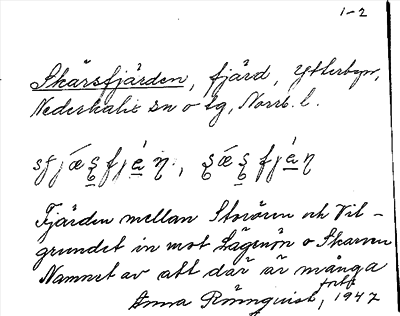 1-2
Skärsfjärden, fjärd, Ytterbyn,
Nederkalix sn o tg, Norrb. l.
Fjärden mellan Storören och Vit-
grundet in mot Lägenön o Skaren
Namnet av att där är många
Anna Rönnqvist, 1947